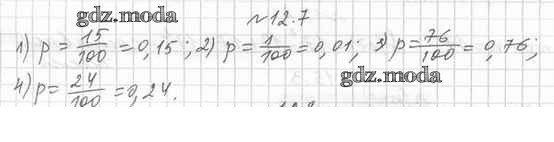 gdz.moda
№12.7
1) p = 15/100 = 0,15; 2) p = 1/100 = 0,01; 3) p = 76/100 = 0,76;
gdz.moda
4) p = 24/100 = 0,24.